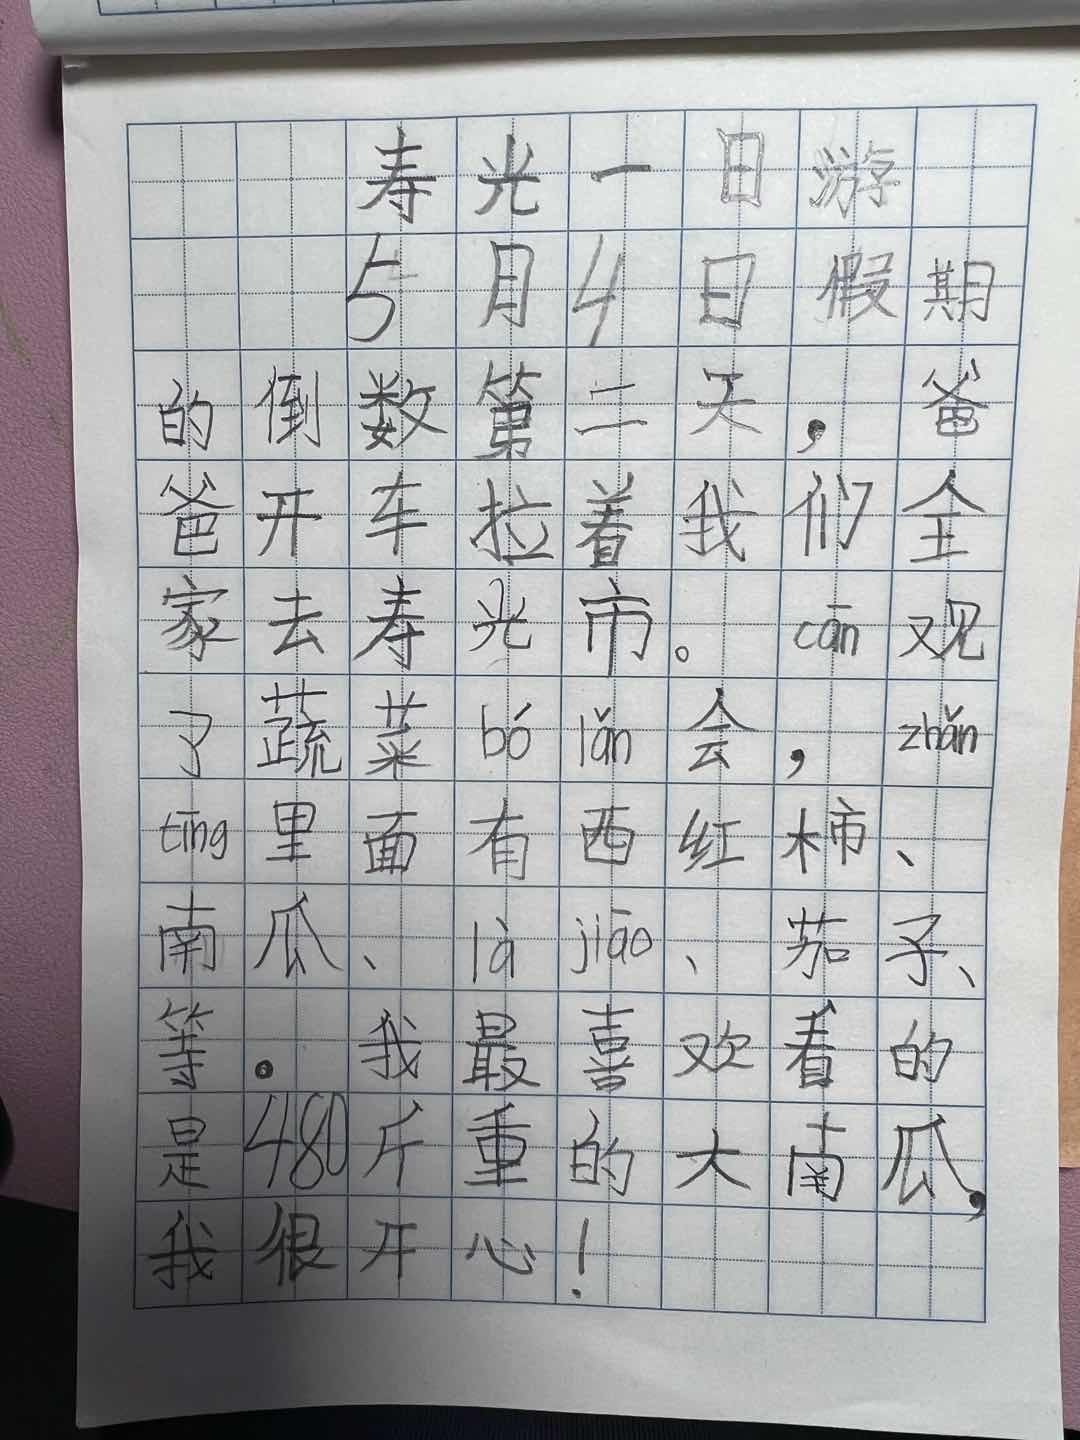 寿光一日游
5月4日假期
的倒数第二天,爸
爸开车拉着我们全
家去寿光市。cān观
了蔬菜bó lǎn会,zhǎn
tīng里面有西红柿、
南瓜、là jiāo、茄子、
等。我最喜欢看的
是480斤重的大南瓜,
我很开心!